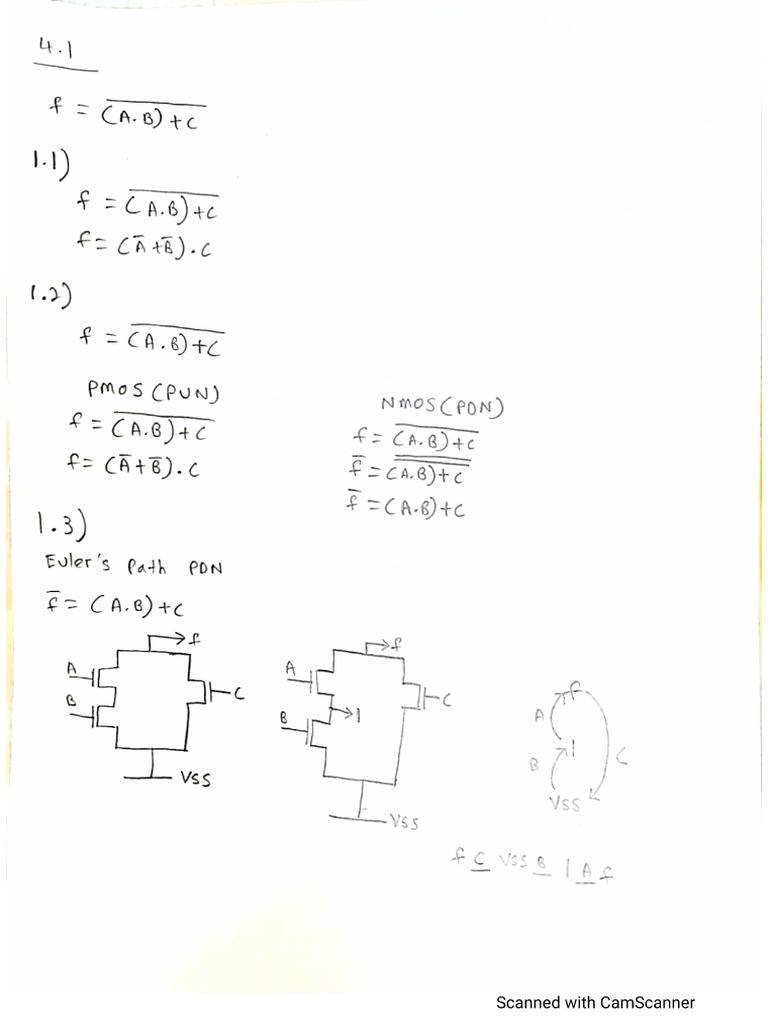 4.1
f = \overline{(A.B)+C}
1.1)
f = \overline{(A.B)+C}
f = (Ā+B̄).C
1.2)
f = \overline{(A.B)+C}
PMOS (PUN)
f = \overline{(A.B)+C}
f = (Ā+B̄).C
NMOS (PDN)
f = \overline{(A.B)+C}
f̄ = \overline{\overline{(A.B)+C}}
f̄ = (A.B)+C
1.3)
Euler's Path PDN
f̄ = (A.B)+C
f
A
B
C
VSS
f
A
1
B
C
VSS
f
A
1
B
C
VSS
f C VSS B 1 A f
Scanned with CamScanner